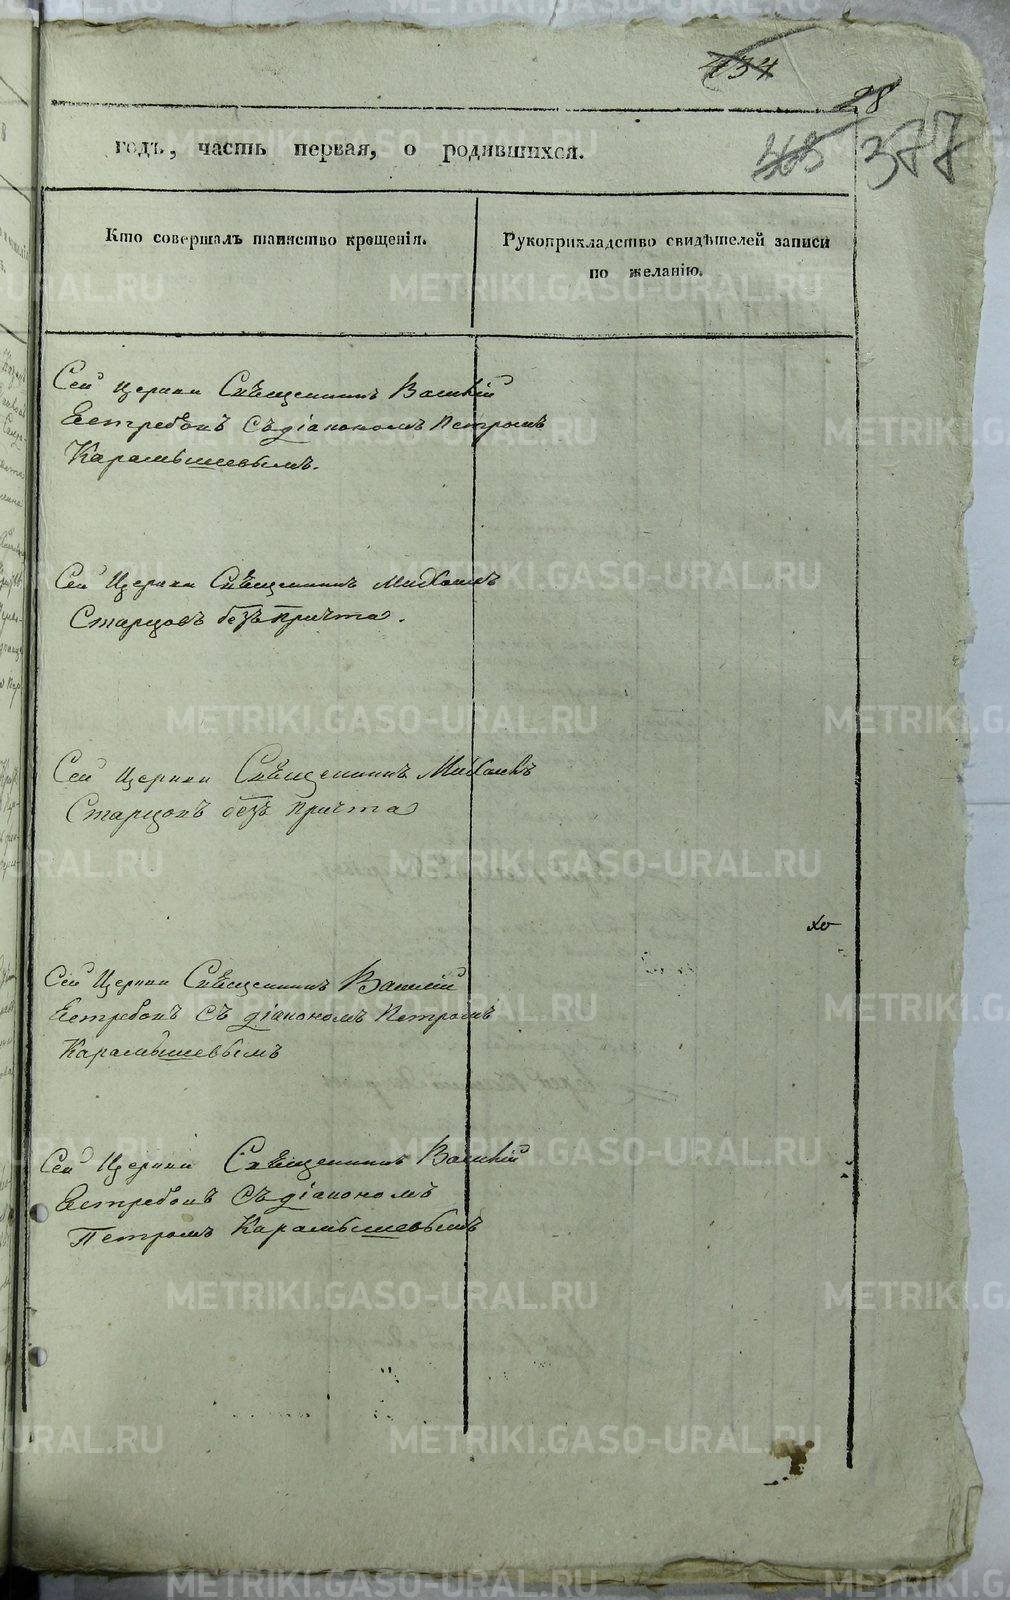 434
28
годъ, часть первая, о родившихся.
377
Кто совершалъ таинство крещенія.
Рукоприкладство свидѣтелей записи
по желанію.
Сей Церкви Священникъ Василій
Естребовъ Съ діакономъ Петромъ
Карамышевымъ.
Сей Церкви Священникъ Михаилъ
Старцовъ безъ причта.
Сей Церкви Священникъ Михаилъ
Старцовъ безъ причта
Сей Церкви Священникъ Василій
Естребовъ Съ діакономъ Петромъ
Карамышевымъ
Сей Церкви Священникъ Василій
Естребовъ Съ діакономъ
Петромъ Карамышевымъ
METRIKI.GASO-URAL.RU